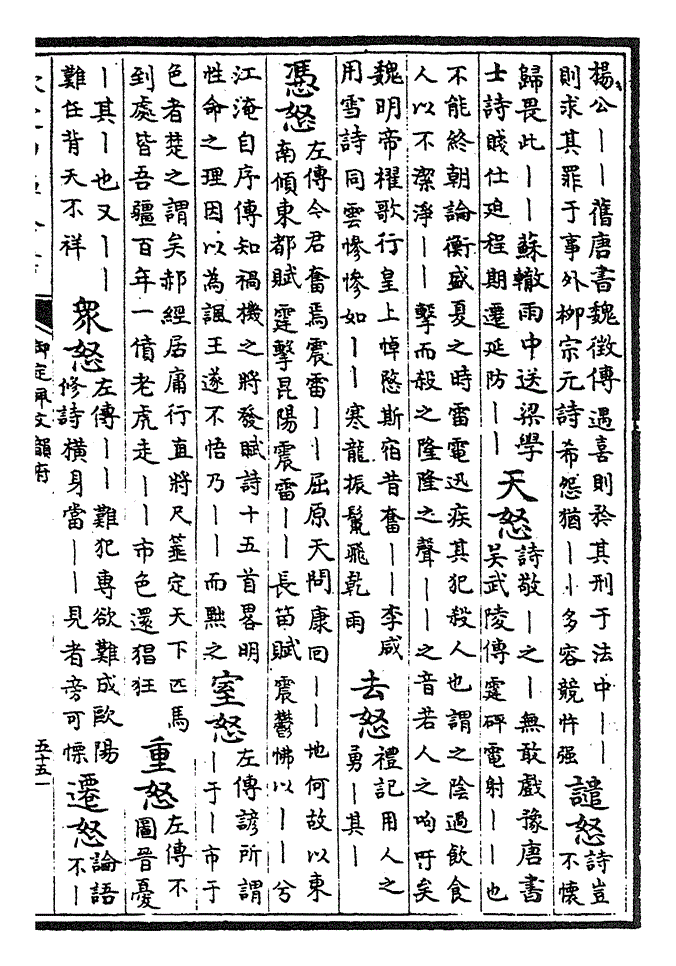 楊公丨丨舊唐書魏徵傳遇喜則矜其刑于法中丨丨
則求其罪于事外柳宗元詩希怨猶丨丨多容競忤强
譴怒
詩豈
不懷
歸畏此丨丨蘇轍雨中送梁學
士詩賤仕迫程期遷延防丨丨
天怒
詩敬丨之丨無敢戲豫唐書
吳武陵傳霆砰電射丨丨也
不能終朝論衡盛夏之時雷電迅疾其犯殺人也謂之陰過飲食
人以不潔淨丨丨擊而殺之隆隆之聲丨丨之音若人之呴吁矣
魏明帝櫂歌行皇上悼愍斯宿昔奮丨丨李咸
用雪詩同雲慘慘如丨丨寒龍振鬣飛乾雨
去怒
禮記用人之
勇丨其丨
馮怒
左傳今君奮焉震雷丨丨屈原天問康回丨丨地何故以東
南傾東都賦霆擊昆陽震雷丨丨長笛賦震鬱怫以丨丨兮
江淹自序傳知禍機之將發賦詩十五首畧明
性命之理因以為諷王遂不悟乃丨丨而黜之
室怒
左傳諺所謂
丨于丨市于
色者楚之謂矣郝經居庸行直將尺箠定天下匹馬
到處皆吾疆百年一僨老虎走丨丨市色還猖狂
重怒
左傳不
圖晉憂
丨其丨也又丨丨
難任背天不祥
衆怒
左傳丨丨難犯專欲難成歐陽
修詩橫身當丨丨見者旁可慄
遷怒
論語
不丨
御定佩文韻府